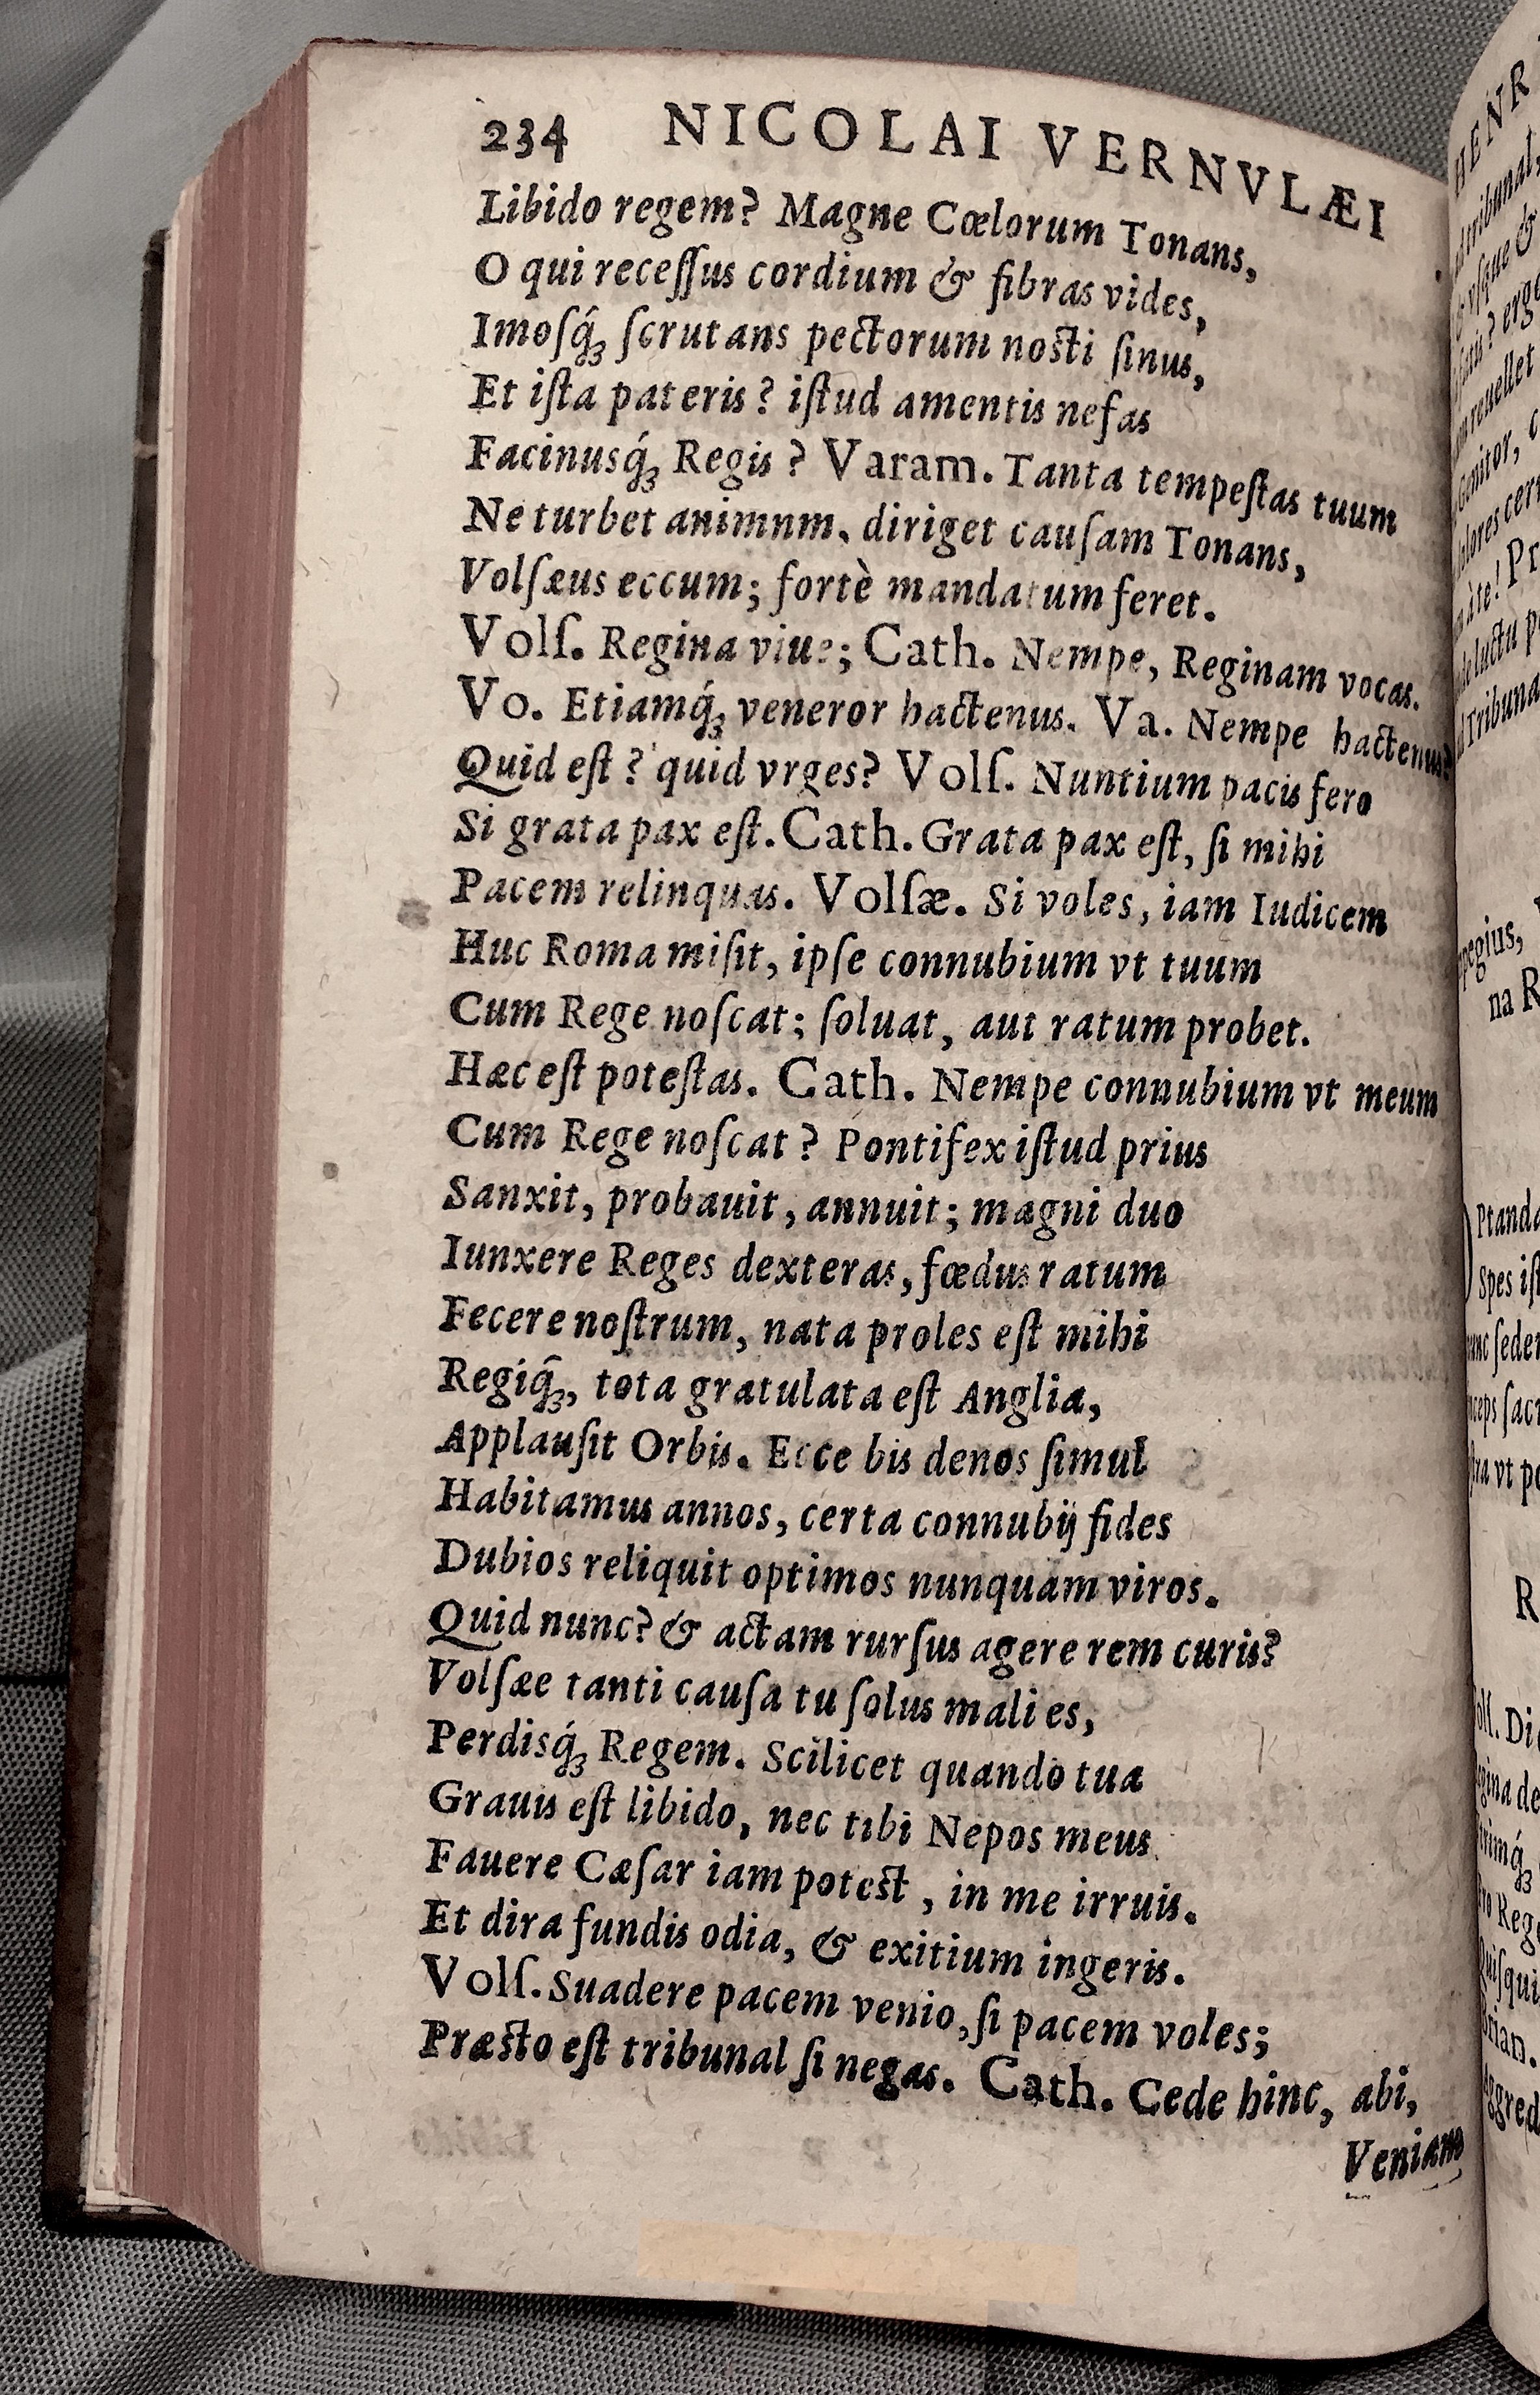 234 NICOLAI VERNVLÆI
Libido regem? Magne Cœlorum Tonans,
O qui receſſus cordium & fibras vides,
Imoſq́ꝫ ſcrutans pectorum noſti ſinus,
Et iſta pateris? iſtud amentis nefas
Facinusq́ꝫ Regis? Varam. Tanta tempeſtas tuum
Ne turbet animnm, diriget cauſam Tonans,
Volſæus eccum; fortè mandatum feret.
Volſ. Regina viue; Cath. Nempe, Reginam vocas.
Vo. Etiamq́ꝫ veneror hactenus. Va. Nempe hactenus?
Quid eſt? quid vrges? Volſ. Nuntium pacis fero
Si grata pax eſt. Cath. Grata pax eſt, ſi mihi
Pacem relinquas. Volſæ. Si voles, iam Iudicem
Huc Roma miſit, ipſe connubium vt tuum
Cum Rege noſcat; ſoluat, aut ratum probet.
Hæc eſt poteſtas. Cath. Nempe connubium vt meum
Cum Rege noſcat? Pontifex iſtud prius
Sanxit, probauit, annuit; magni duo
Iunxere Reges dexteras, fœdus ratum
Fecere noſtrum, nata proles eſt mihi
Regiq̂ꝫ, tota gratulata eſt Anglia,
Applauſit Orbis. Ecce bis denos ſimul
Habitamus annos, certa connubij fides
Dubios reliquit optimos nunquam viros.
Quid nunc? & actam rurſus agere rem curis?
Volſæe tanti cauſa tu ſolus mali es,
Perdisq́ꝫ Regem. Scilicet quando tua
Grauis eſt libido, nec tibi Nepos meus
Fauere Cæſar iam poteſt, in me irruis.
Et dira fundis odia, & exitium ingeris.
Volſ. Suadere pacem venio, ſi pacem voles;
Præſto eſt tribunal ſi negas. Cath. Cede hinc, abi,
Veniam